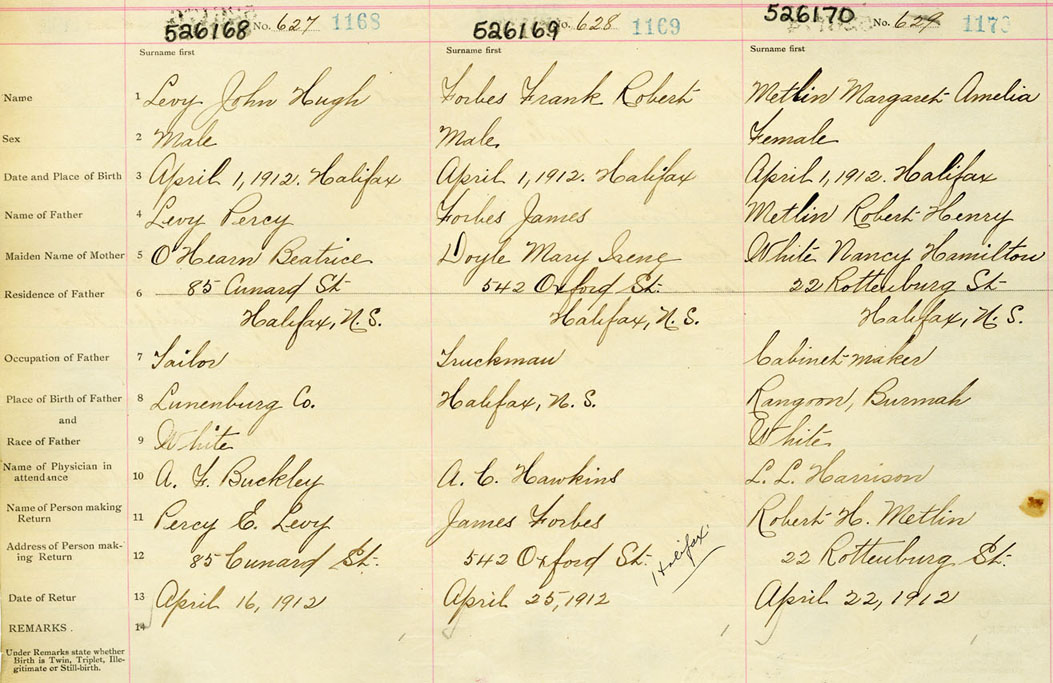 526168 No. 627 1168 526169 No. 628 1169 526170 No. 629 1170
Surname first Surname first Surname first
Name 1 Levy John Hugh Forbes Frank Robert Metlin Margaret Amelia
Sex 2 Male Male Female
Date and Place of Birth 3 April 1, 1912. Halifax April 1, 1912. Halifax April 1, 1912. Halifax
Name of Father 4 Levy Percy Forbes James Metlin Robert Henry
Maiden Name of Mother 5 O'Hearn Beatrice Doyle Mary Irene White Nancy Hamilton
Residence of Father 6 85 Cunard St. 542 Oxford St. 22 Rottenburg St
Halifax, N.S. Halifax, N.S. Halifax, N.S.
Occupation of Father 7 Tailor Truckman Cabinet maker
Place of Birth of Father 8 Lunenburg Co. Halifax, N.S. Rangoon, Burmah
and
Race of Father 9 White White
Name of Physician in
attendance 10 A. F. Buckley A. C. Hawkins L. L. Harrison
Name of Person making
Return 11 Percy E. Levy James Forbes Robert H. Metlin
Address of Person mak-
ing Return 12 85 Cunard St. 542 Oxford St. Halifax 22 Rottenburg St.
Date of Retur 13 April 16, 1912 April 25, 1912 April 22, 1912
REMARKS. 14
Under Remarks state whether
Birth is Twin, Triplet, Ille-
gitimate or Still-birth.